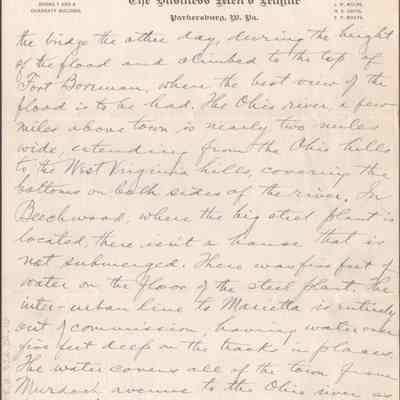 The Business Men's League
Parkersburg, W. Va.
the bridge the other day, during the height
of the flood and climbed to the top of
Fort Boreman, where the best view of the
flood is to be had. The Ohio river, a few
miles above town is nearly two miles
wide, extending from the Ohio hills
to the West Virginia hills, covering the
bottoms on both sides of the river. In
Beechwood, where the big steel plant is
located, there isn't a house that is
not submerged. There was five feet of
water on the floor of the steel plant. The
inter-urban line to Marietta is entirely
out of commission, having water over
five feet deep on the tracks in places.
The water covers all of the town from
Murdoch avenue to the Ohio river as